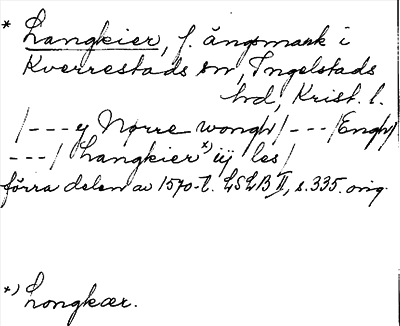 * Langkier, f. ängsmark i
Kverrestads sn, Ingelstads
hd, Krist. l.
/--- y Nørre wongh/ --- /Engh/
---/ Langkier *) iij les/
förra delen av 1570-t. LSLB II, s. 335. orig.
*) Longkær.